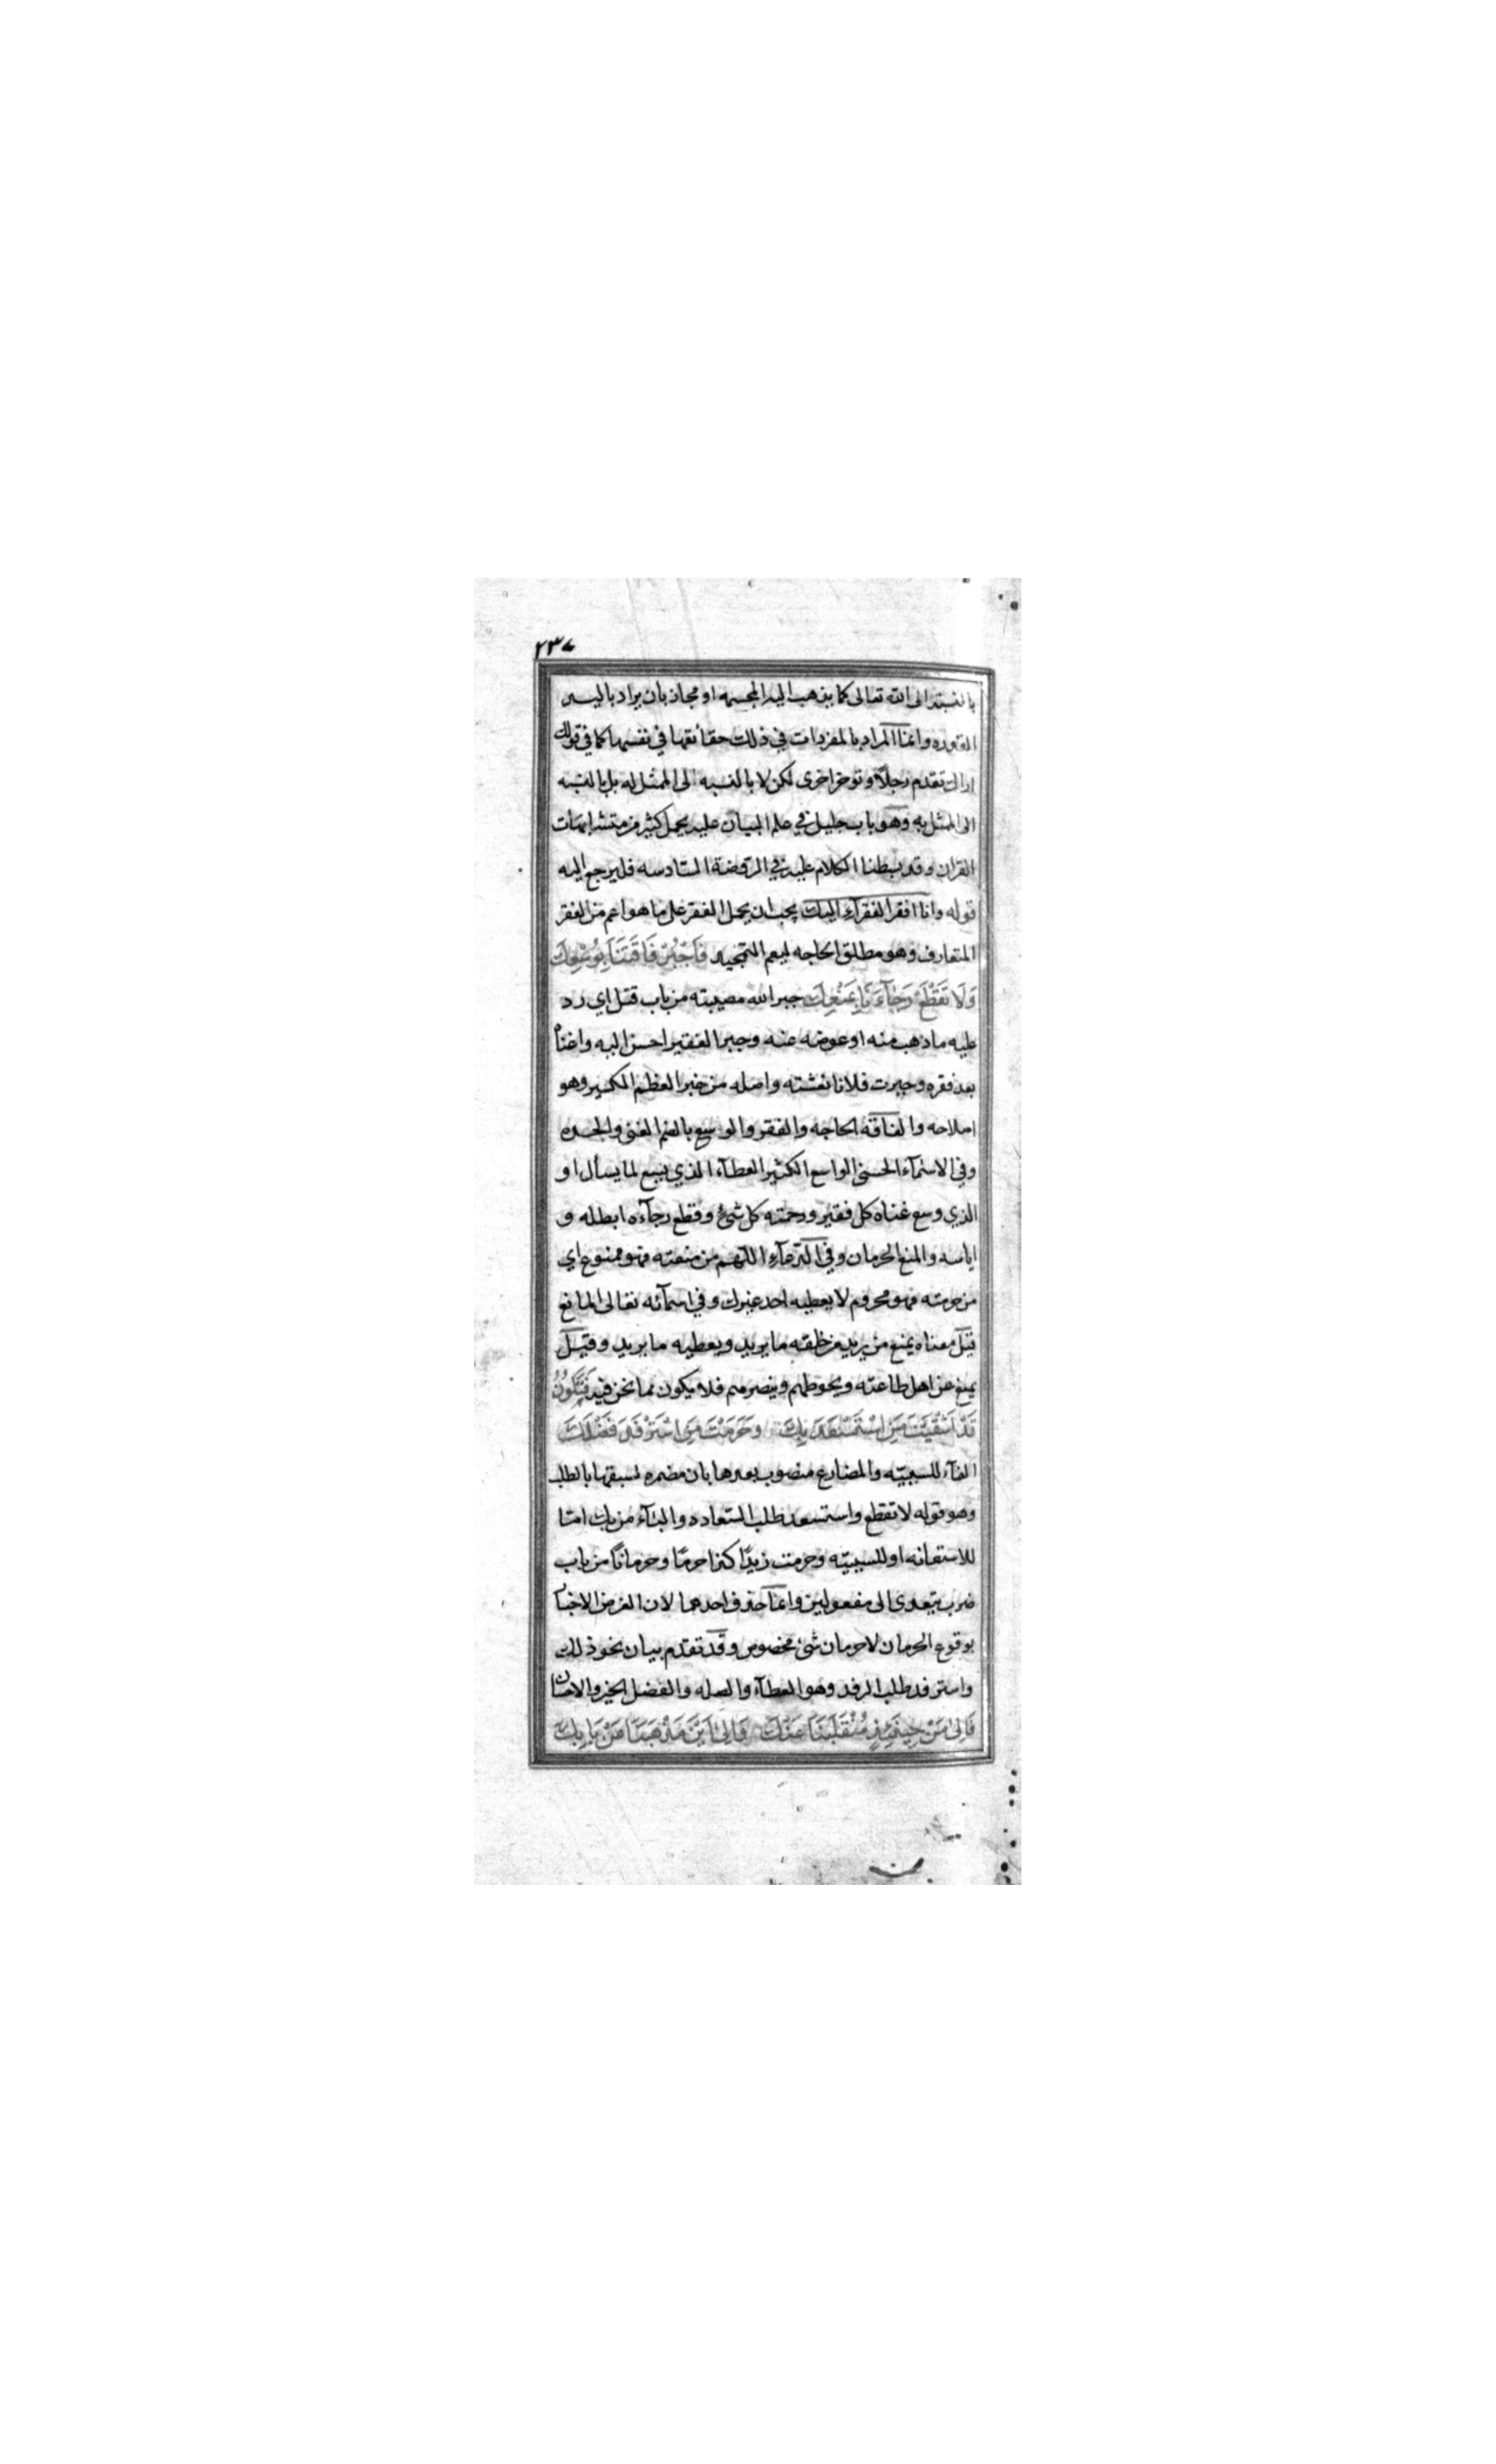 ٢٣٧
بالنسبة الى الله تعالى كما يذهب اليه المجسمه او مجاز بان يراد باليدين
القدره وانما المراد بالمفردات في ذلك حقائقها في نفسها كما في قولك
اراك تقدم رجلاً وتوخر اخرى لكن لا بالنسبه الى الممثل له بل بالنسبه
الى الممثل به وهو باب جليل في علم البيان عليه يحمل كثير من متشابهات
القران وقد بسطنا الكلام عليه في الروضة السادسه فليرجع اليه
قوله وانا افقر الفقرآء اليك يجب ان يحمل الفقر على ما هو اعم من الفقر
المتعارف وهو مطلق الحاجه ليعم التمجيد فَاجْبُرْ فَاقَتَنَا بِوُسْعِكَ
وَلَا تَقْطَعْ رَجَآءَنَا بِمَنْعِكَ جبر الله مصيبته من باب قتل اي رد
عليه ما ذهب منه او عوضه عنه وجبر الفقير احسن اليه واغناه
بعد فقره وجبرت فلانا نعشته واصله من جبر العظم الكسير وهو
اصلاحه والفاقه الحاجه والفقر والوسع بالضم الغنى والجده
وفي الاسمآء الحسنى الواسع الكثير العطآء الذي يسع لما يسأل او
الذي وسع غناه كل فقير ورحمته كل شئ وقطع رجآءه ابطله و
اياسه والمنع الحرمان وفي الدعآء اللهم من منعته فهو ممنوع اي
من حرمته فهو محروم لا يعطيه احد غيرك وفي اسمآئه تعالى المانع
قيل معناه يمنع من يريد من خلقه ما يريد ويعطيه ما يريد وقيل
يمنع عن اهل طاعته ويحوطهم وينصرهم فلا يكون مما نحن فيه فَتَكُونُ
قَدْ اَشْقَيْتَ مَنِ اسْتَسْعَدَ بِكَ وَحَرَمْتَ مَنِ اسْتَرْفَدَ فَضْلَكَ
الفآء للسببيّه والمضارع منصوب بعدها بان مضمره لسبقها بالطلب
وهو قوله لا تقطع واستسعد طلب السعاده والبآء من بك امّا
للاستعانه او للسببيّه وحرمت زيدًا كذا حرمًا وحرمانًا من باب
ضرب يتعدى الى مفعولين وانما حذف احدهما لان الغرض الاخبار
بوقوع الحرمان لا حرمان شئ مخصوص وقد تقدم بيان نحو ذلك
واسترفد طلب الرفد وهو العطآء والصله والفضل الخير والاحسان
فَاِلىٰ مَنْ حِينَئِذٍ مُنْقَلَبُنَا عَنْكَ وَاِلىٰ اَيْنَ مَذْهَبُنَا عَنْ بَابِكَ